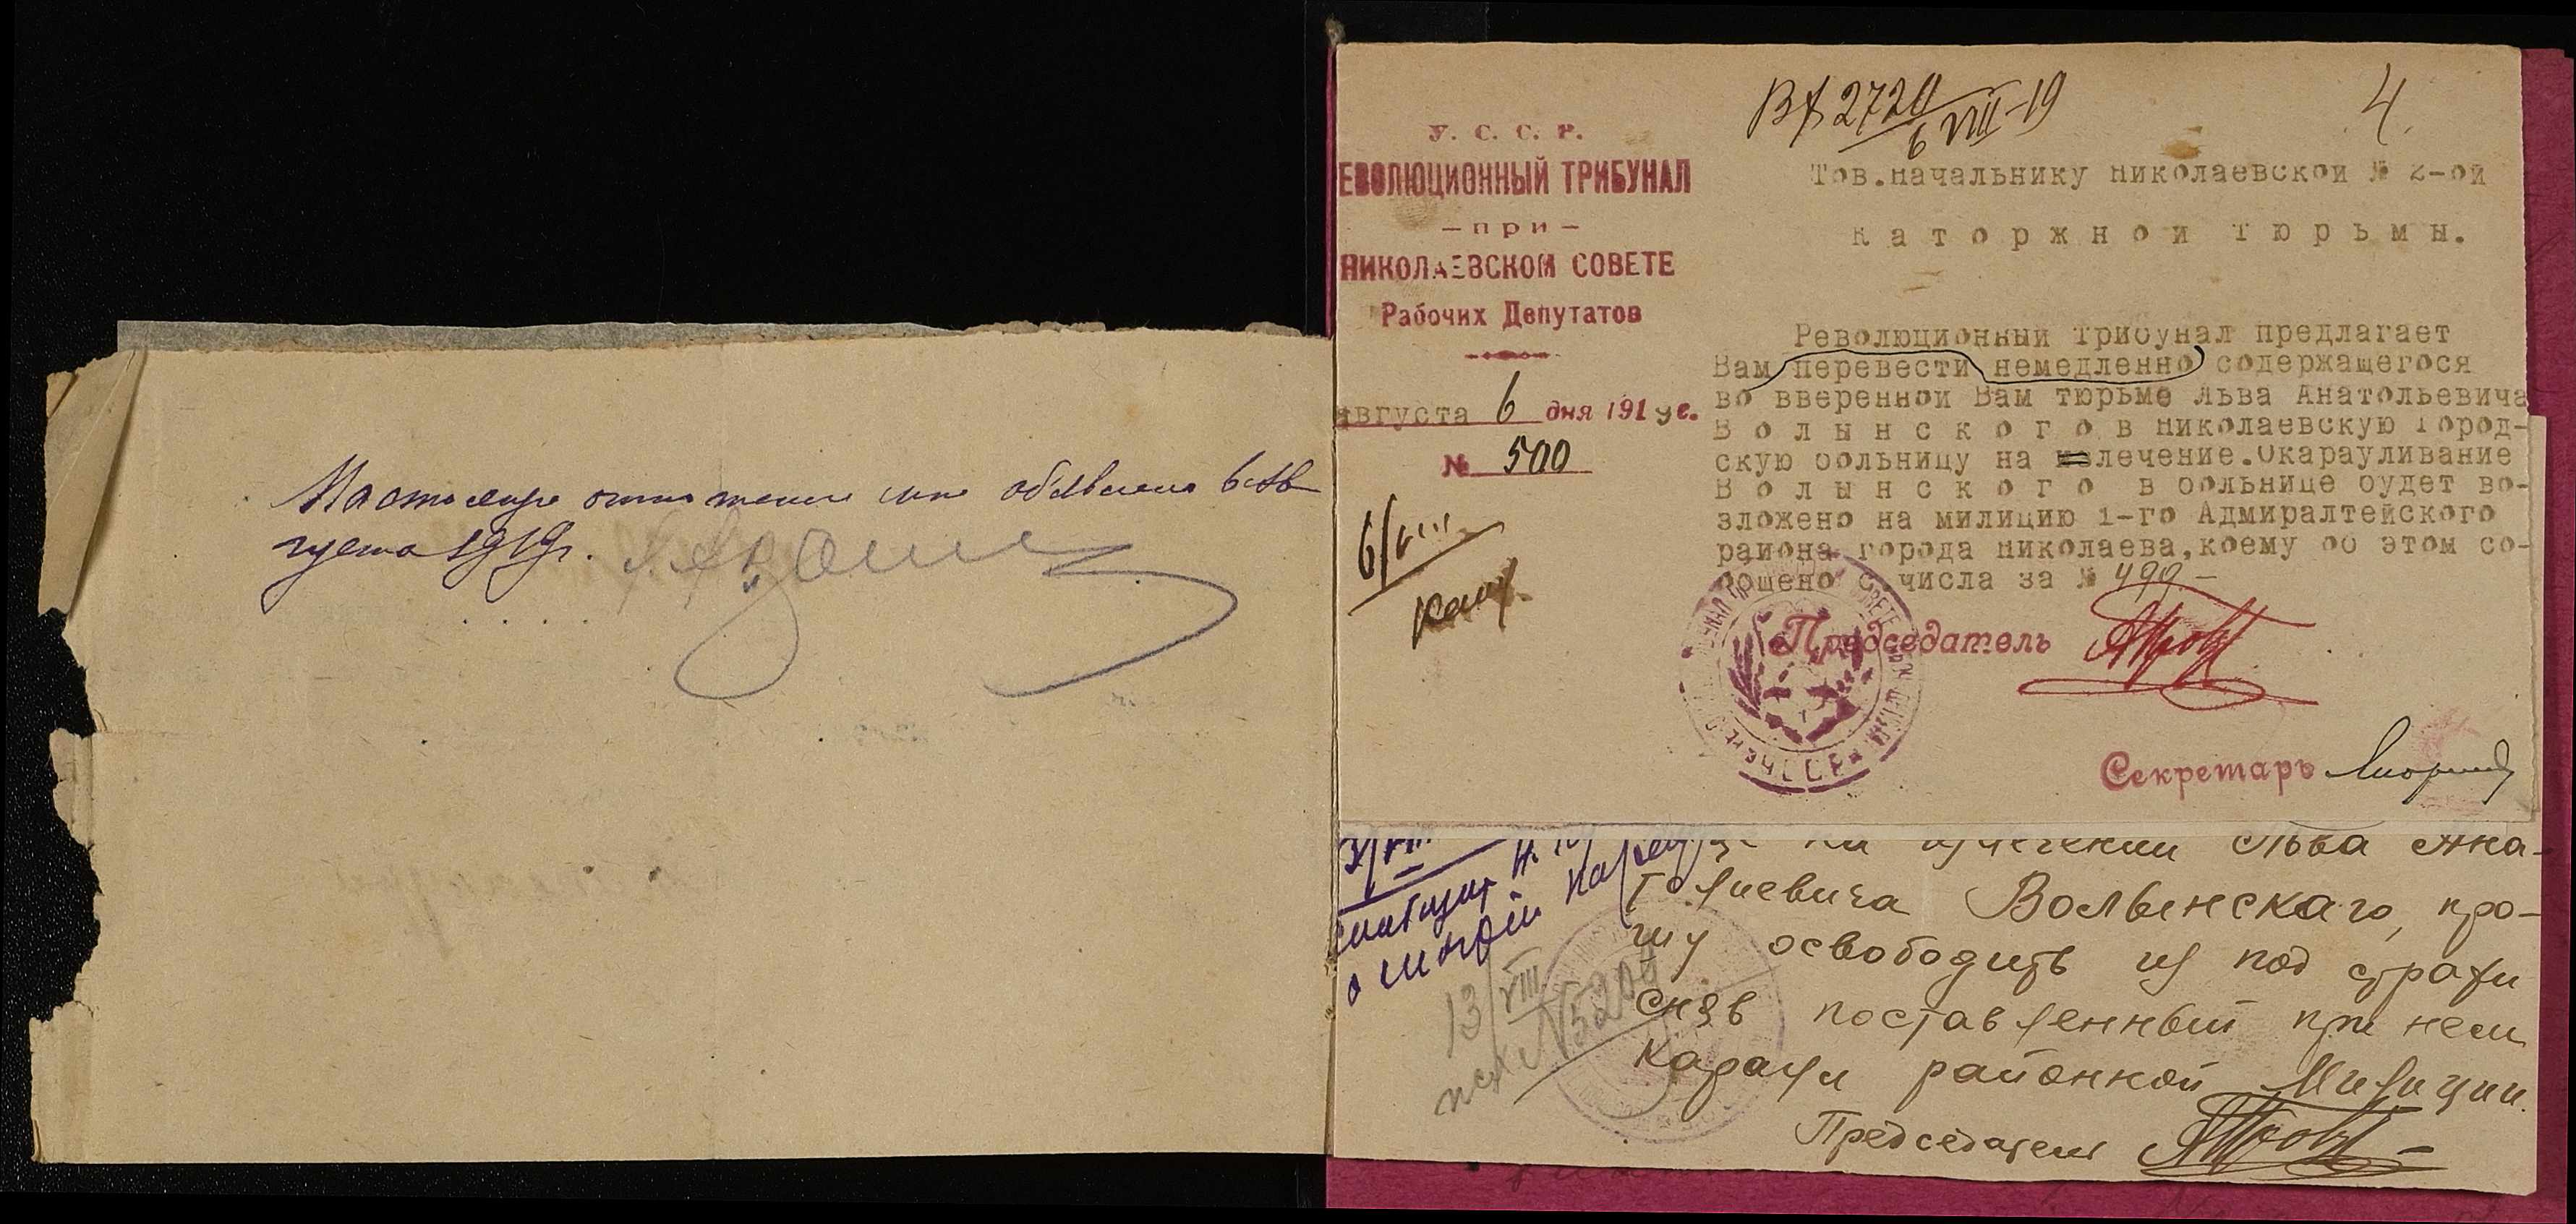 Настоящее отношение мне объявлено 6 Ав
густа 1919 г.
Вх 2720
6 VIII-19
4.
У. С. С. Р.
ЕВОЛЮЦИОННЫЙ ТРИБУНАЛ
— при —
НИКОЛАЕВСКОМ СОВЕТЕ
Рабочих Депутатов
августа 6 дня 1919 г.
№ 500
6/VIII
Тов.начальнику Николаевской № 2-ой
К а т о р ж н о й т ю р ь м ы.
Революционный Трибунал предлагает
Вам перевести немедленно содержащегося
во вверенной Вам тюрьме Льва Анатольевича
В о л ы н с к о г о в Николаевскую Город-
скую больницу на лечение.Окарауливание
В о л ы н с к о г о в больнице будет во-
зложено на милицию 1-го Адмиралтейского
района города Николаева,коему об этом со-
общено с. числа за № 499 —
Председатель
Секретарь
на излечении Льва Ана-
толиевича Волынскаго, про-
шу освободить из под стражи
сняв поставленный при нем
караул районной Милиции.
Председатель
13/VIII
исх N5200